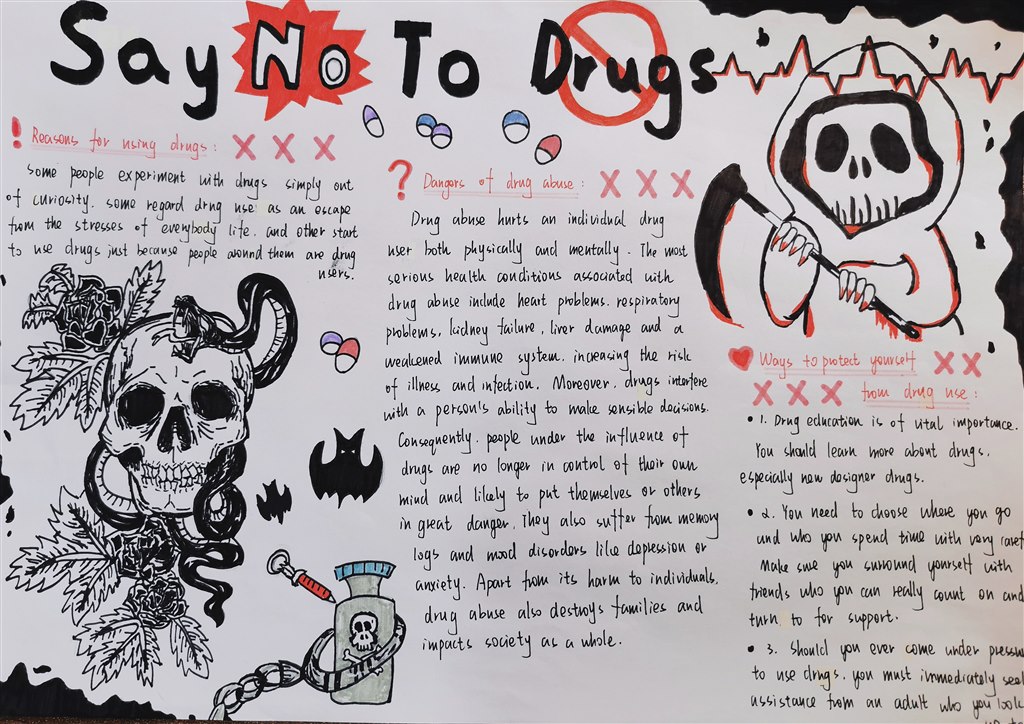 Say No To Drugs
! Reasons for using drugs :
Some people experiment with drugs simply out
of curiosity. some regard drug use as an escape
from the stresses of everybody life. and other start
to use drugs just because people around them are drug
users.
? Dangers of drug abuse :
Drug abuse hurts an individual drug
user both physically and mentally. The most
serious health conditions associated with
drug abuse include heart problems. respiratory
problems, kidney failure, liver damage and a
weakened immune system. increasing the risk
of illness and infection. Moreover, drugs interfere
with a person's ability to make sensible decisions.
Consequently. people under the influence of
drugs are no longer in control of their own
mind and likely to put themselves or others
in great danger. They also suffer from memory
logs and mood disorders like depression or
anxiety. Apart from its harm to individuals,
drug abuse also destroys families and
impacts society as a whole.
Ways to protect yourself
from drug use :
• 1. Drug education is of vital importance.
You should learn more about drugs.
especially new designer drugs.
• 2. You need to choose where you go
and who you spend time with very caref
Make sure you surround yourself with
friends who you can really count on and
turn to for support.
• 3. Should you ever come under pressu
to use drugs. you must immediately seek
assistance from an adult who you look